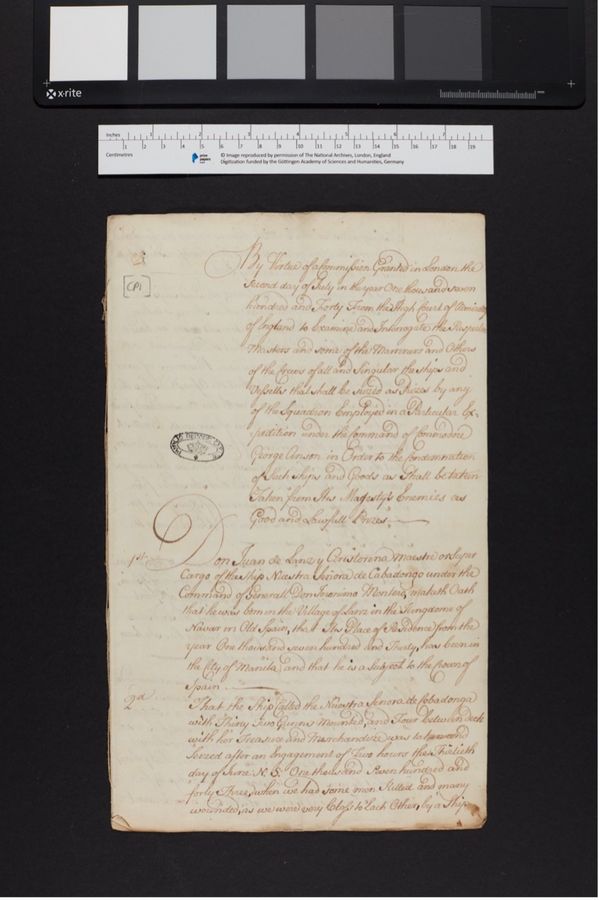 x·rite
Inches 1 2 3 4 5 6 7
Centimetres 1 2 3 4 5 6 7 8 9 10 11 12 13 14 15 16 17 18 19
prize papers
© Image reproduced by permission of The National Archives, London, England
Digitization funded by the Göttingen Academy of Sciences and Humanities, Germany
CP1
By Virtue of a Commission Granted in London the
Second day of July in the year One thousand seven
hundred and Forty From the High Court of Admiralty
of England to Examine and Interrogate the Respective
Masters and some of the Mariners and Others
of the Crews of all and Singular the ships and
Vessells that shall be seized as Prizes by any
of the Squadron Employed in a Particular Ex-
pedition under the Command of Commodore
George Anson in Order to the Condemnation
of Such ships and Goods as Shall be taken
Taken from His Majesty's Enemies as
Good and Lawfull Prizes
1st
Don Juan de Lanz y Cristorena Maestre or Super
Cargo of the Ship Nuestra Señora de Cabadongo under the
Command of Generall Don Jeronimo Montero, maketh Oath
that he was born in the Village of Lanz in the Kingdome of
Navar in Old Spain, that His Place of Residence from the
year One thousand seven hundred and Thirty, has been in
the City of Manila, and that he is a Subject to the Crown of
Spain
2d
That the Ship Called the Nuestra Senora de Cobadonga
with Thirty Two Gunns Mounted, and Four between deck
with her Treasure and Merchandize was taken and
Seized after an Engagement of Two hours the Twelieth
day of June N: S: One thousand Seven hundred and
forty Three, when we had some men Killed and many
wounded, as we were very Close to Each Other, by a Ship